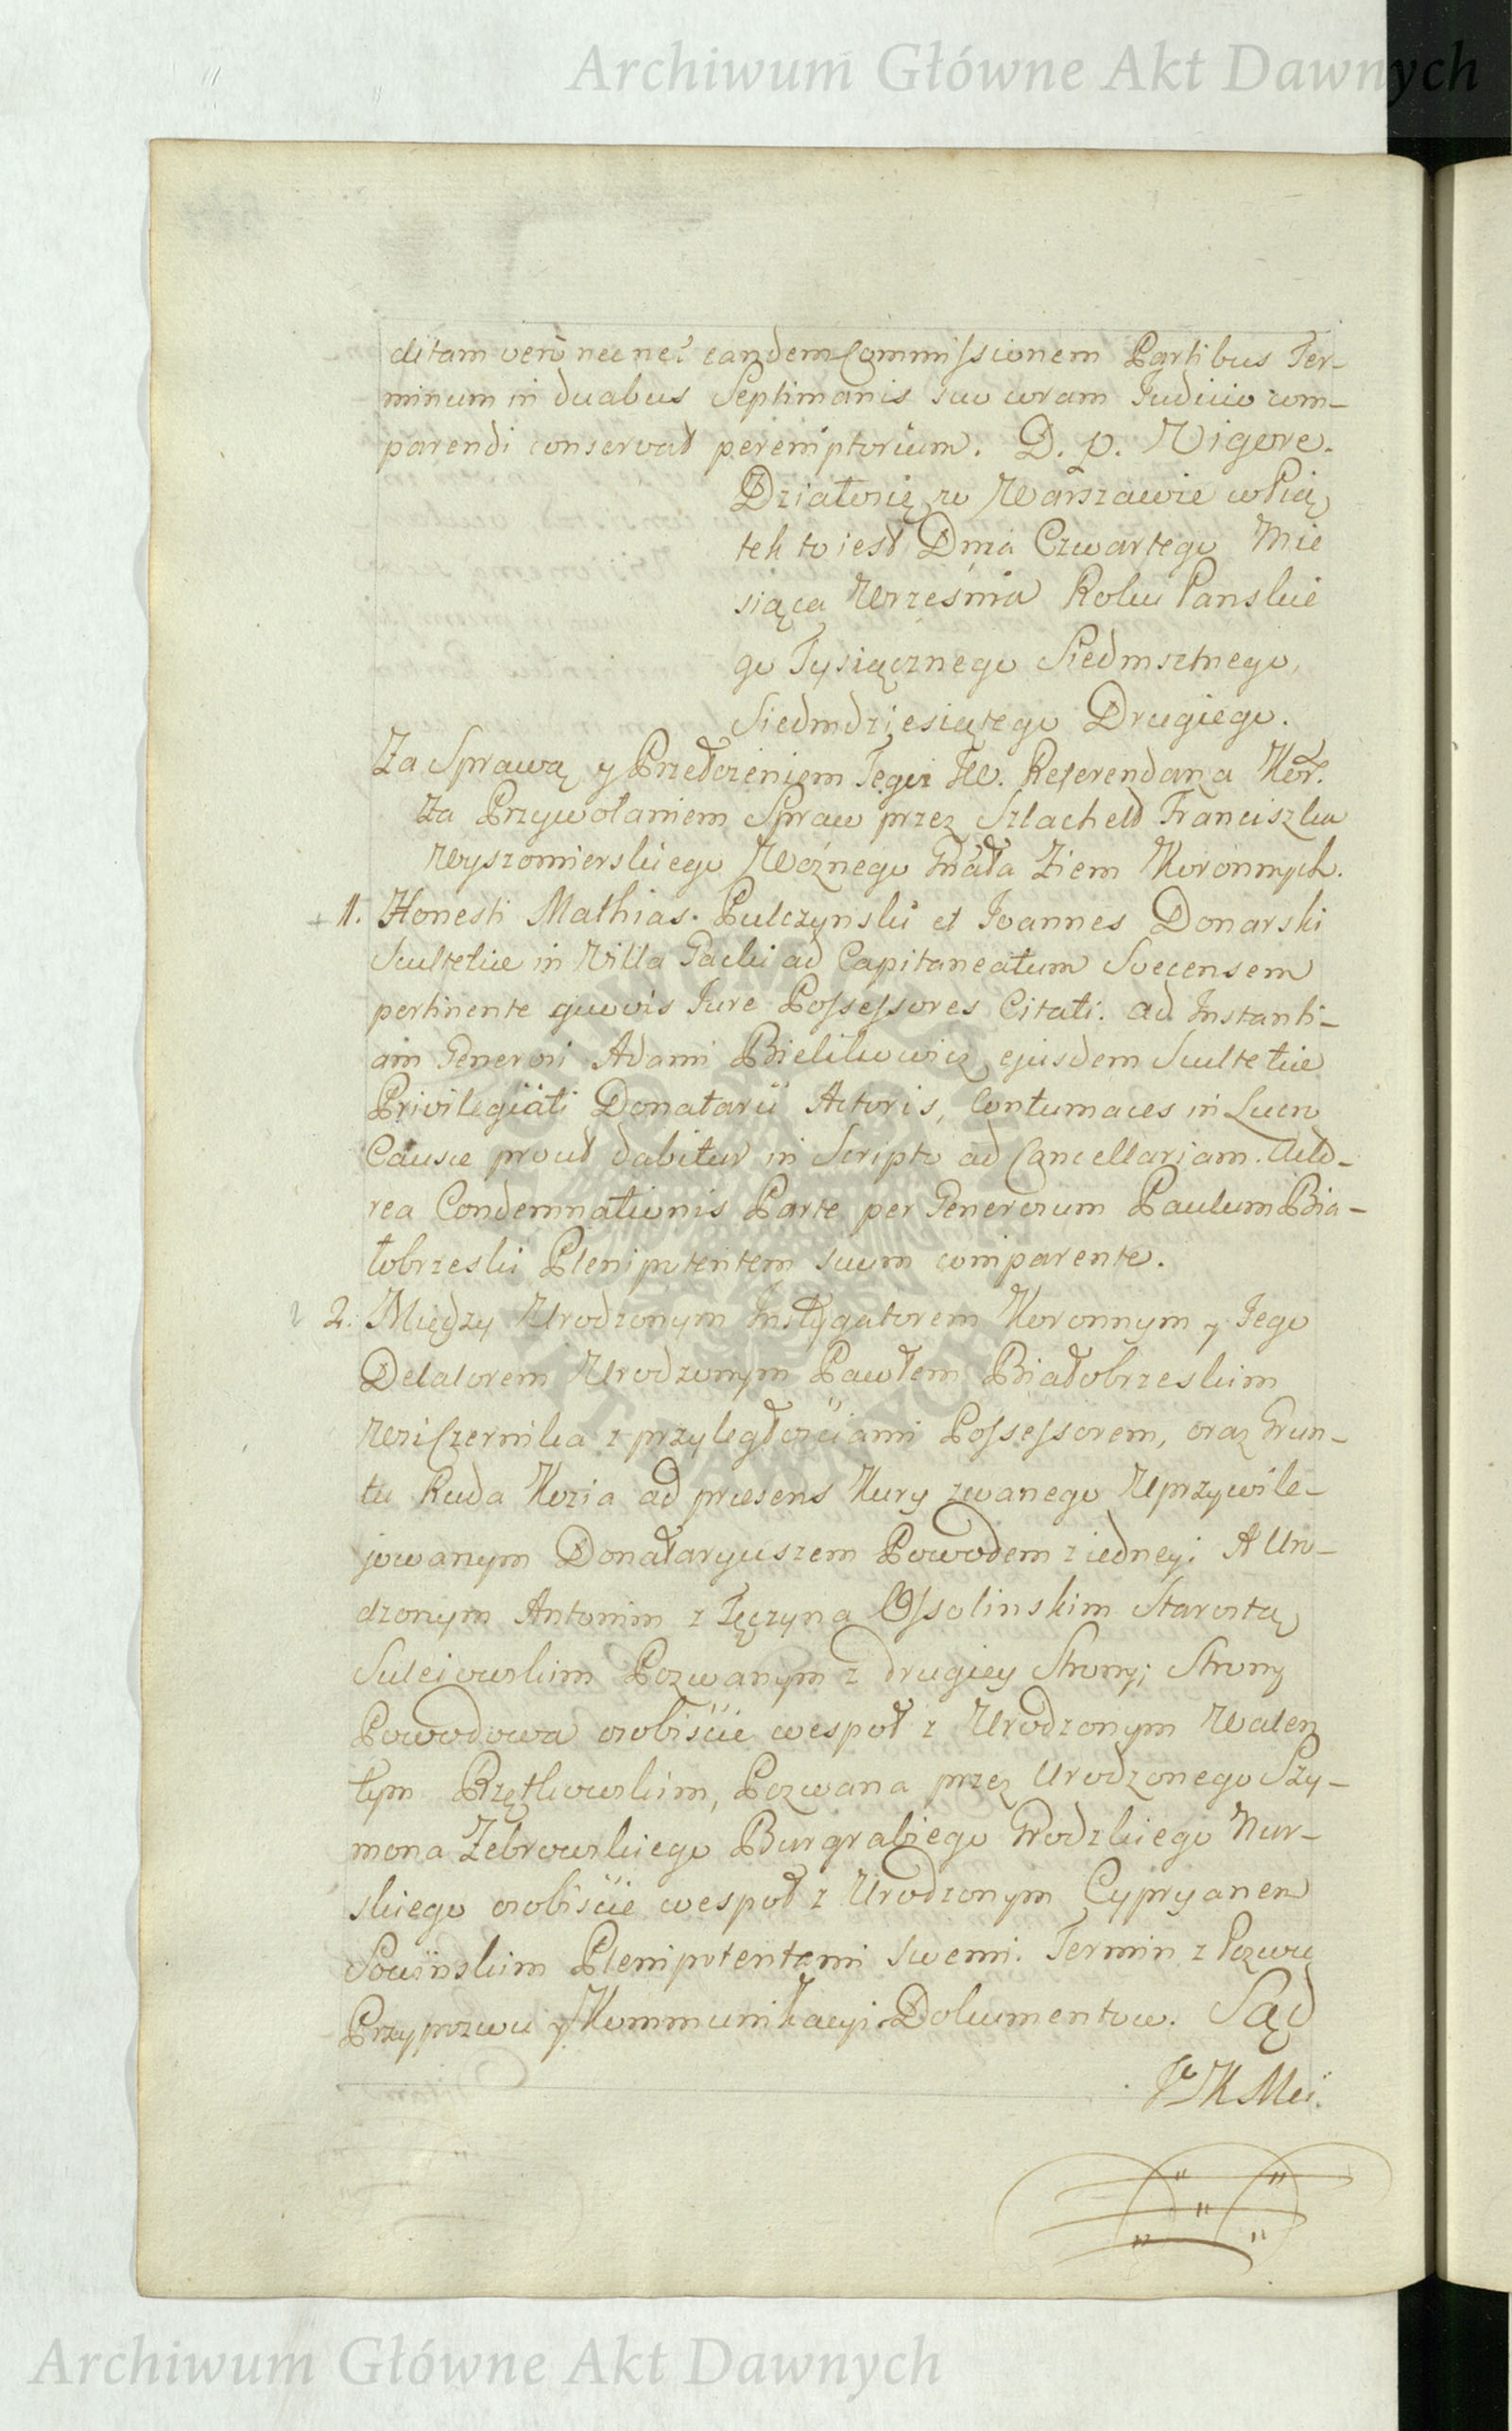 Archiwum Główne Akt Dawnych
ditam vero nec ne? eandem Commissionem Partibus Ter-
minum in duabus Septimanis suo coram Judicio com-
parendi conservat peremptorium. D. p. Vigore.
Działo się w Warszawie w Pią
tek to iest Dnia Czwartego Mie
siąca Września Roku Panskie
go Tysiącznego Siedmsetnego,
Siedmdziesiątego Drugiego.
Za Sprawą y Przełożeniem Tegoż JW. Referendarza Kor.
Za Przywołaniem Spraw przez Szlachet Franciszka
Wyszomierskiego Woźnego Gnała Ziem Koronnych.
1. Honesti Mathias Pulczynski et Joannes Donarski
Scultetiæ in Villa Gacki ad Capitaneatum Svecensem
pertinente quovis Jure Possessores Citati. ad Instanti-
am Generosi Adami Bielikowicz ejusdem Scultetiæ
Privilegiati Donatarii Actoris, Contumaces in Lucro
Causæ prout dabitur in Scripto ad Cancellariam.
rea Condemnationis Parte per Generosum Paulum Bia-
łobrzeski Plenipotentem suum comparente.
2. Między Urodzonym Instygatorem Koronnym y Jego
Delatorem Urodzonym Pawłem Białobrzeskim
Wsi Czernika z przyległościami Possessorem, oraz Grun-
tu Ruda Kozia ad præsens Kury zwanego Uprzywile-
jowanym Donataryuszem Powodem z iedney; A Uro-
dzonym Antonim z Tęczyna Ossolinskim Starostą
Suleiowskim Pozwanym z drugiey Strony; Strony
Powodowa osobiście wespoł z Urodzonym Walen
tym Rzętkowskim, Pozwana przez Urodzonego Szy-
mona Zebrowskiego Burgrabiego Grodzkiego Nur-
skiego osobiście wespoł z Urodzonym Cypryanem
Sowińskim Plenipotentami swemi. Termin z Pozwu
Przypozwu y Kommunikacyi Dokumentow. Sąd
JKMci.
Archiwum Główne Akt Dawnych